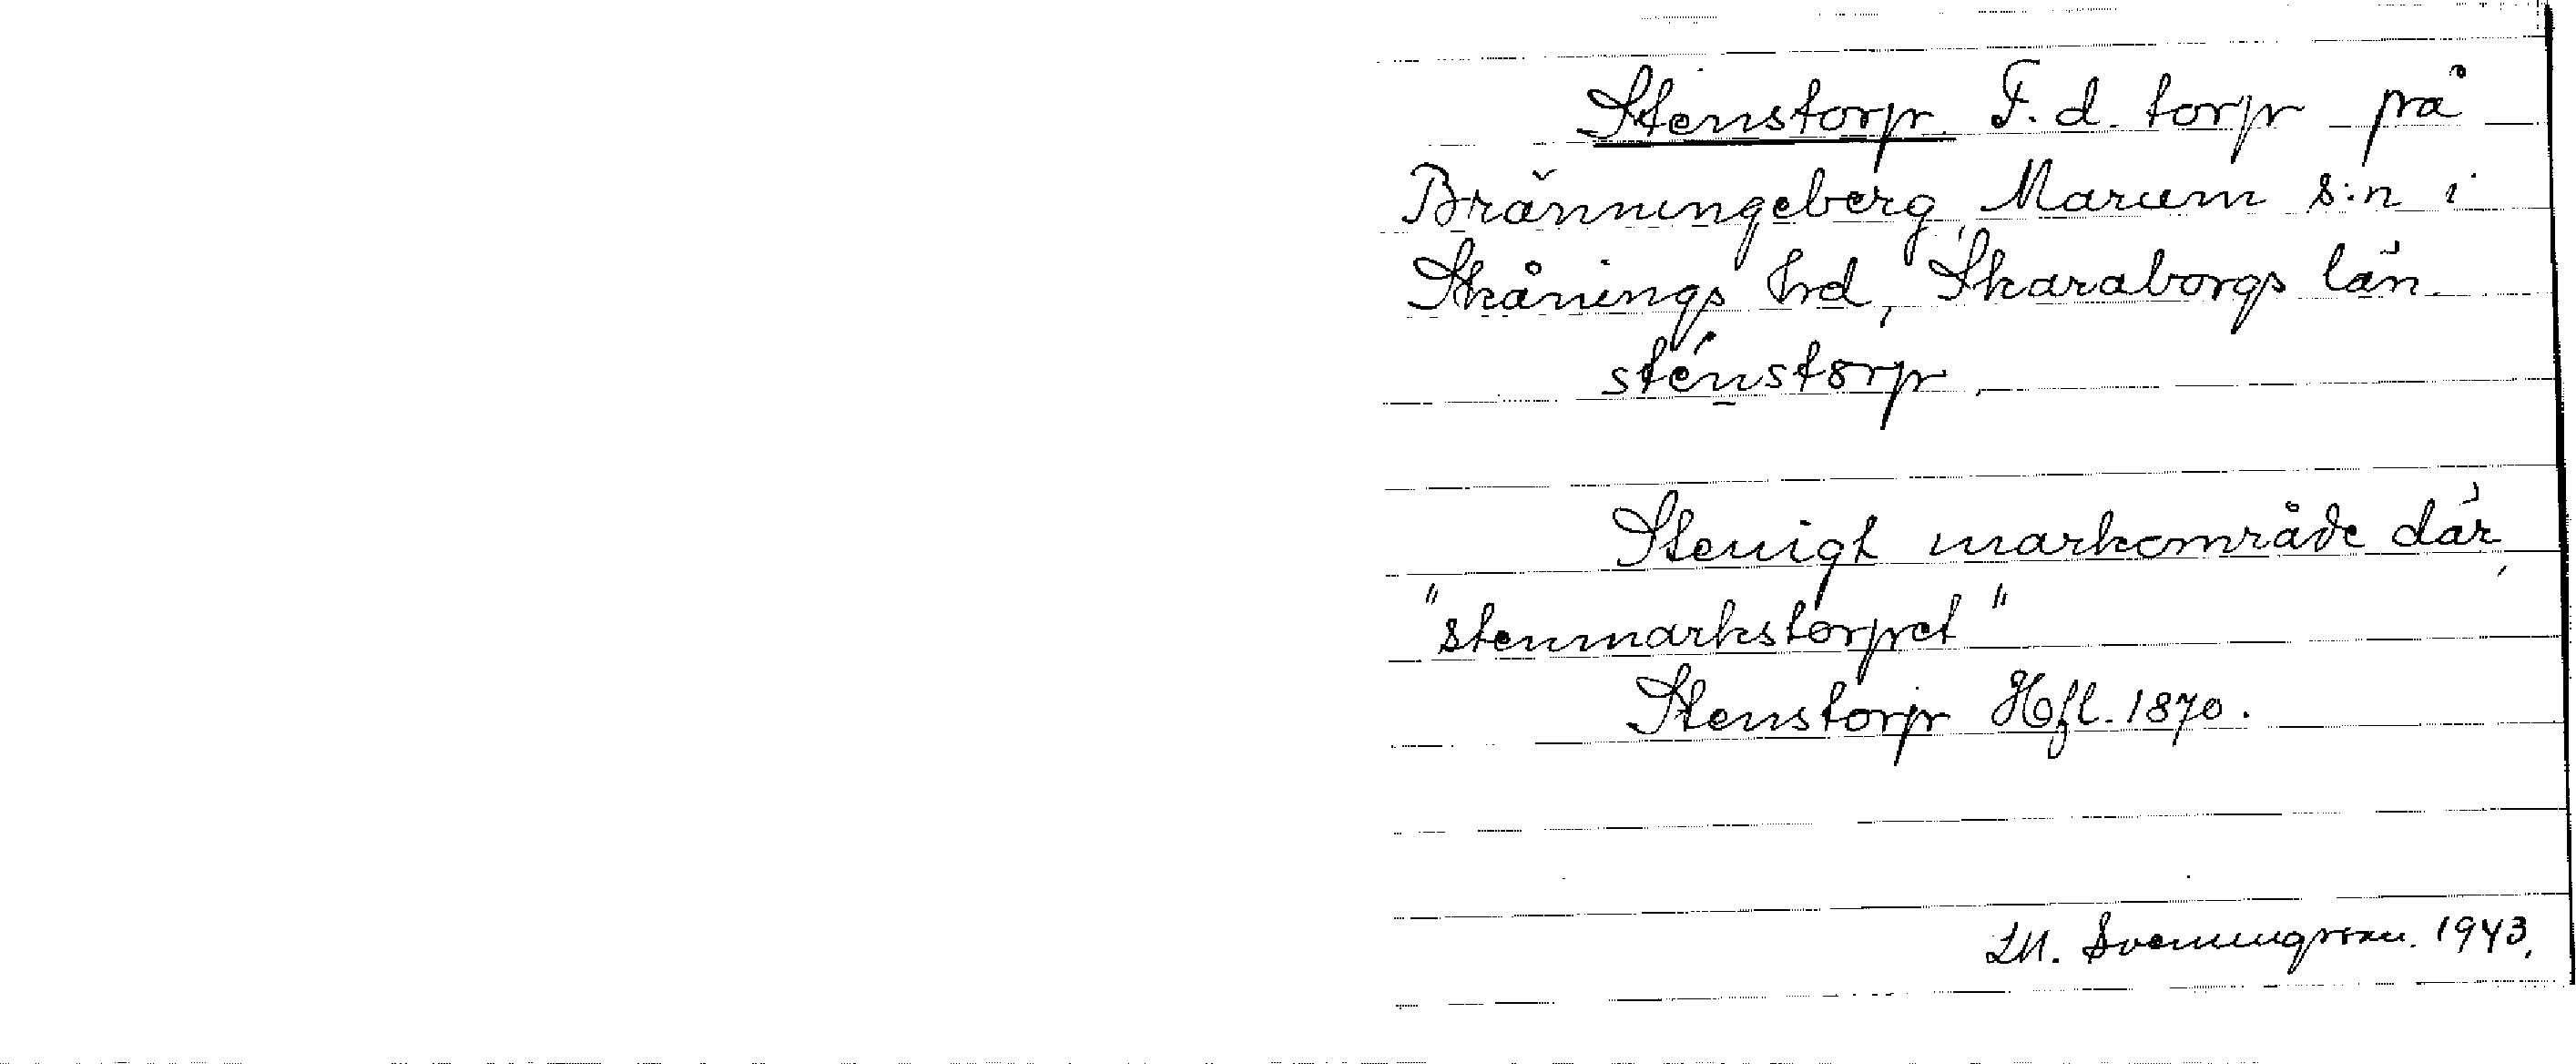 Stenstorp. F. d. torp på
Bränningeberg, Marum s:n i
Skånings hrd, Skaraborgs län.
sténstorp.
Stenigt markområde där,
"stenmarkstorpet"
Stenstorp Hfl. 1870.
Sveningsson. 1943.